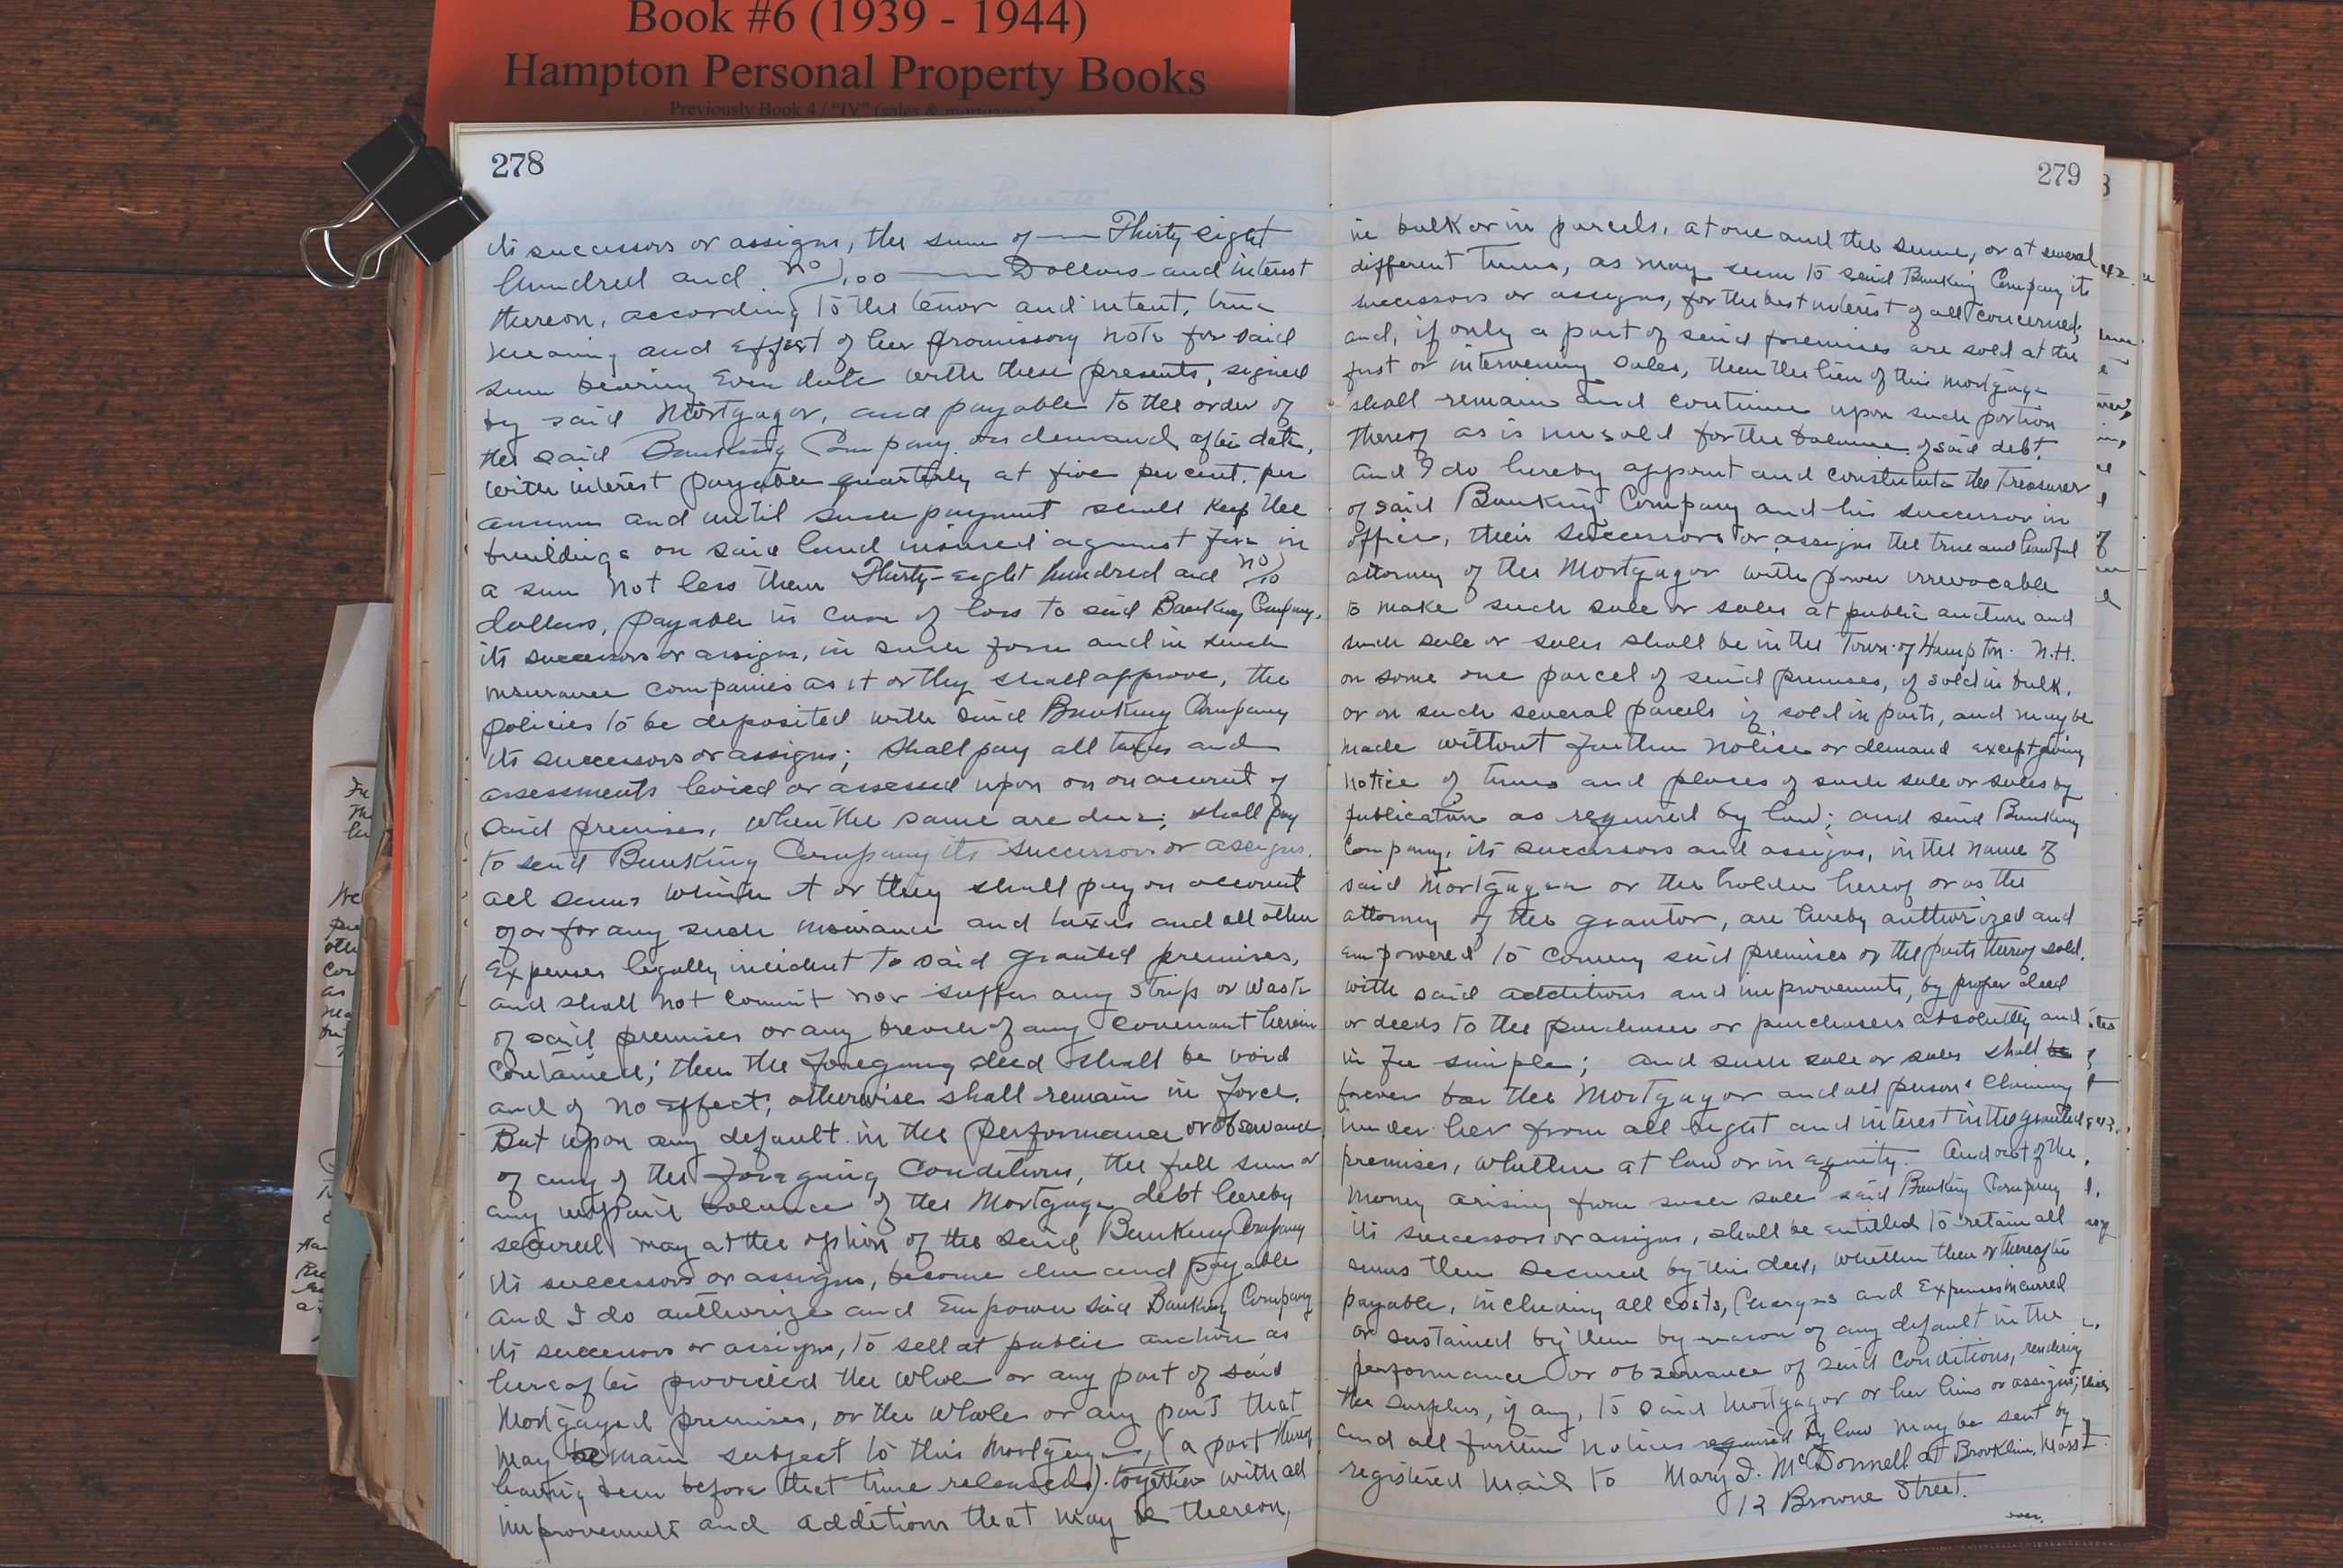 Book #6 (1939 - 1944)
Hampton Personal Property Books
Previously Book 4 / "IV" (sales & mortgages)
278
its successors or assigns, the sum of —— Thirty eight
hundred and no/100 —— Dollars and interest
thereon, according to the tenor and intent, true
meaning and effect of her promissory note for said
sum bearing Even date with these presents, signed
by said Mortgagor, and payable to the order of
the said Banking Company on demand after date,
with interest payable quarterly at five per cent. per
annum and until such payment shall Keep the
buildings on said land insured against Fire in
a sum not less than Thirty-eight hundred and no/00
dollars, payable in case of loss to said Banking Company,
its successors or assigns, in such form and in such
insurance companies as it or they shall approve, the
policies to be deposited with said Banking Company
its successors or assigns; shall pay all taxes and
assessments levied or assessed upon on on account of
said premises, when the same are due; shall pay
to said Banking Company its successors or assigns,
all sums which it or they shall pay on account
of or for any such insurance and taxes and all other
Expenses legally incident to said granted premises,
and shall not commit nor suffer any strip or waste
of said premises or any breach of any covenant herein
Contained; then the foregoing deed shall be void
and of no effect; otherwise shall remain in force.
But upon any default in the performance or observance
of any of the foregoing Conditions, the full sum or
any unpaid balance of the Mortgage debt hereby
secured may at the option of the said Banking Company
its successors or assigns, become due and payable
And I do authorize and Empower said Banking Company
its successors or assigns, to sell at public auction as
hereafter provided the whole or any part of said
Mortgaged premises, or the whole or any part that
may remain subject to this Mortgage, (a part thereof
having been before that time released) together with all
improvements and additions that may be thereon,
279
in bulk or in parcels, at one and the same, or at several
different times, as may seem to said Banking Company its
successors or assigns, for the best interest of all concerned;
and, if only a part of said premises are sold at the
first or intervening sales, then the lien of this mortgage
shall remain and continue upon such portion
thereof as is unsold for the balance of said debt.
And I do hereby appoint and constitute the Treasurer
of said Banking Company and his successor in
office, their successors or assigns the true and lawful
attorney of the Mortgagor with power irrevocable
to make such sale or sales at public auction and
such sale or sales shall be in the Town of Hampton N.H.
on some one parcel of said premises, if sold in bulk,
or on such several parcels if sold in parts, and may be
made without further notice or demand except giving
notice of times and places of such sale or sales by
publication as required by law; and said Banking
Company, its successors and assigns, in the name of
said Mortgagee or the holder hereof or as the
attorney of the grantor, are hereby authorized and
Empowered to convey said premises or the parts thereof sold,
with said additions and improvements, by proper deed
or deeds to the purchaser or purchasers absolutely and
in fee simple; and such sale or sales shall be
forever bar the Mortgagor and all persons claiming
under her from all right and interest in the granted
premises, whether at law or in equity. And out of the
money arising from such sale said Banking Company
its successors or assigns, shall be entitled to retain all
sums then secured by this deed, whether then or thereafter
payable, including all costs, Charges and Expenses incurred
or sustained by them by reason of any default in the
performance or observance of said conditions, rendering
the surplus, if any, to said Mortgagor or her heirs or assigns;
and all further notices required by law may be sent by
registered mail to Mary I. McDonnell at Brookline, Mass
12 Browne Street.
over.